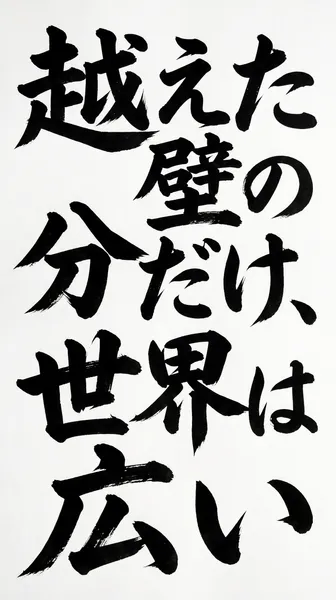 越えた
壁の
分だけ、
世界は
広い